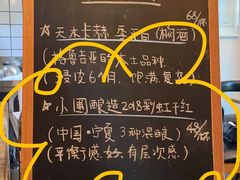 ☆天木卡赫 干白(橘酒)
68/杯
(格鲁吉亚的本土品种
浸皮6个月、饱满复杂)
☆小圃酿造2018彩虹干红
48/杯
(中国·宁夏 3种混酿)
(平衡感好 有层次感)